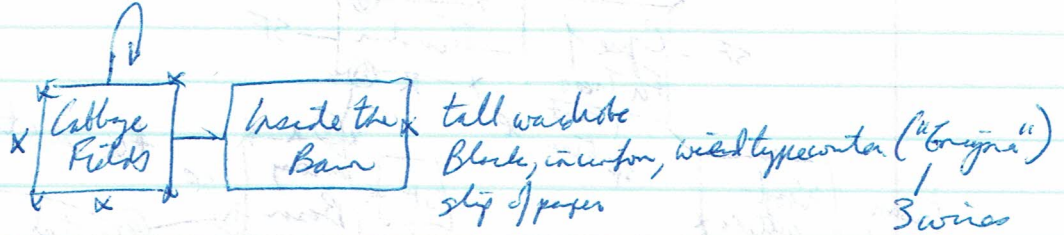 Cabbage Fields
Inside the Barn
tall wardrobe
Black, invention, weird typewriter ("Enigma")
slip of paper
3 wires